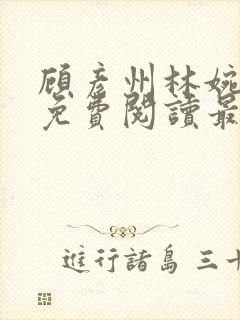 顧彥州林婉
免費閱讀最
進行諸島 三十